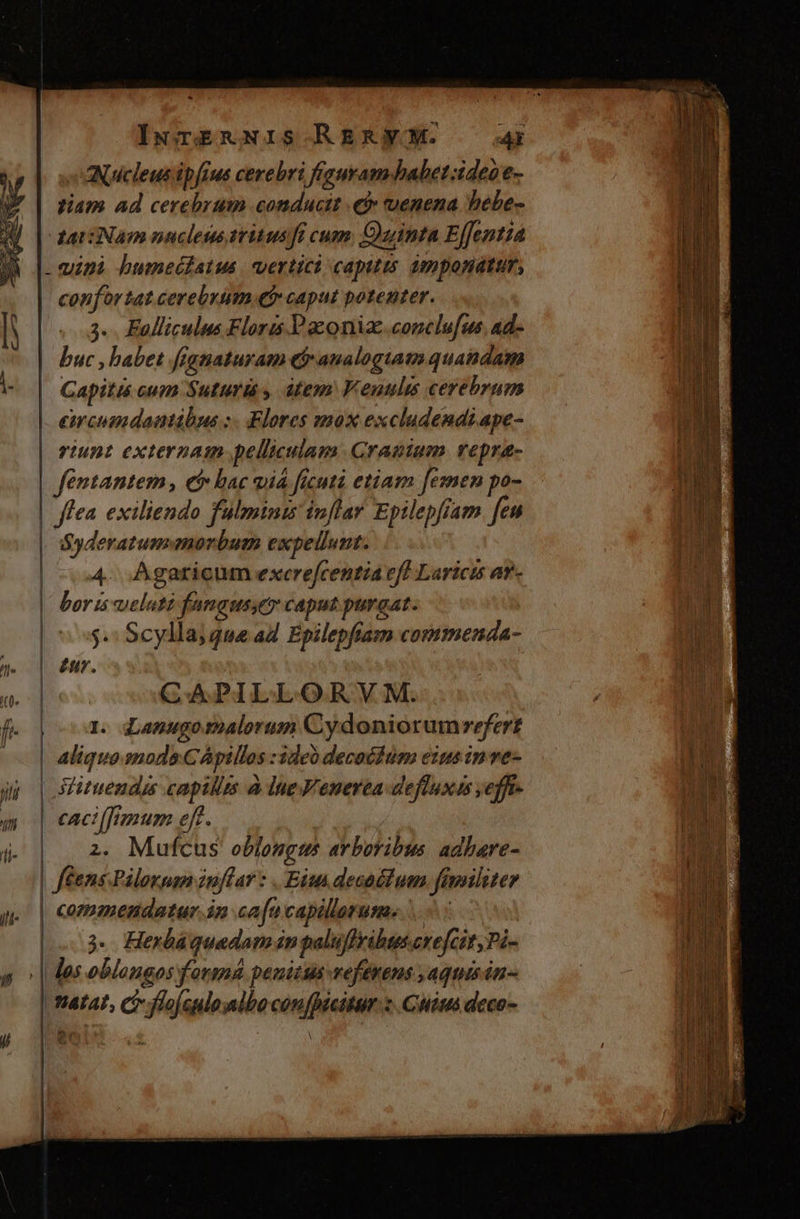 INTERNIS RERVM. 41
Nucleus ipſius cerebri figuram habet: ideò e-
tiam ad cerebrum conducit & venena hebe-
tat: Nam nucleus tritus ſi cum Quinta Eſſentia
vini humectatus vertici capitis imponatur,
confortat cerebrum & caput potenter.
3. Folliculus Floris Pæoniæ concluſus ad-
huc, habet ſignaturam & analogiam quandam
Capitis cum Suturis, item Venulis cerebrum
circumdantibus: Flores mox excludendi ape-
riunt externam pelliculam Cranium repræ-
ſentantem, & hac viâ ſicuti etiam ſemen po-
ſtea exiliendo fulminis inſtar Epilepſiam ſeu
Syderatum morbum expellunt.
4. Agaricum excreſcentia eſt Laricis ar-
boris veluti fungus, & caput purgat.
5. Scylla, quæ ad Epilepſiam commenda-
tur.
CAPILLORVM.
1. Lanugo malorum Cydoniorum refert
aliquo modo Cápillos: ideò decoctùm eius in re-
ſtituendis capillis à lue Venerea defluxis, effi-
caciſſimum eſt.
2. Muſcus oblongus arboribus adhære-
ſcens Pilorum inſtar: Eius decoctum ſimiliter
commendatur in caſu capillorum.
3. Herba quædam in paluſtribus creſcit, Pi-
los oblongos formâ penitus referens, aquis in-
natat, & floſculo albo conſpicitur: Cuius deco-